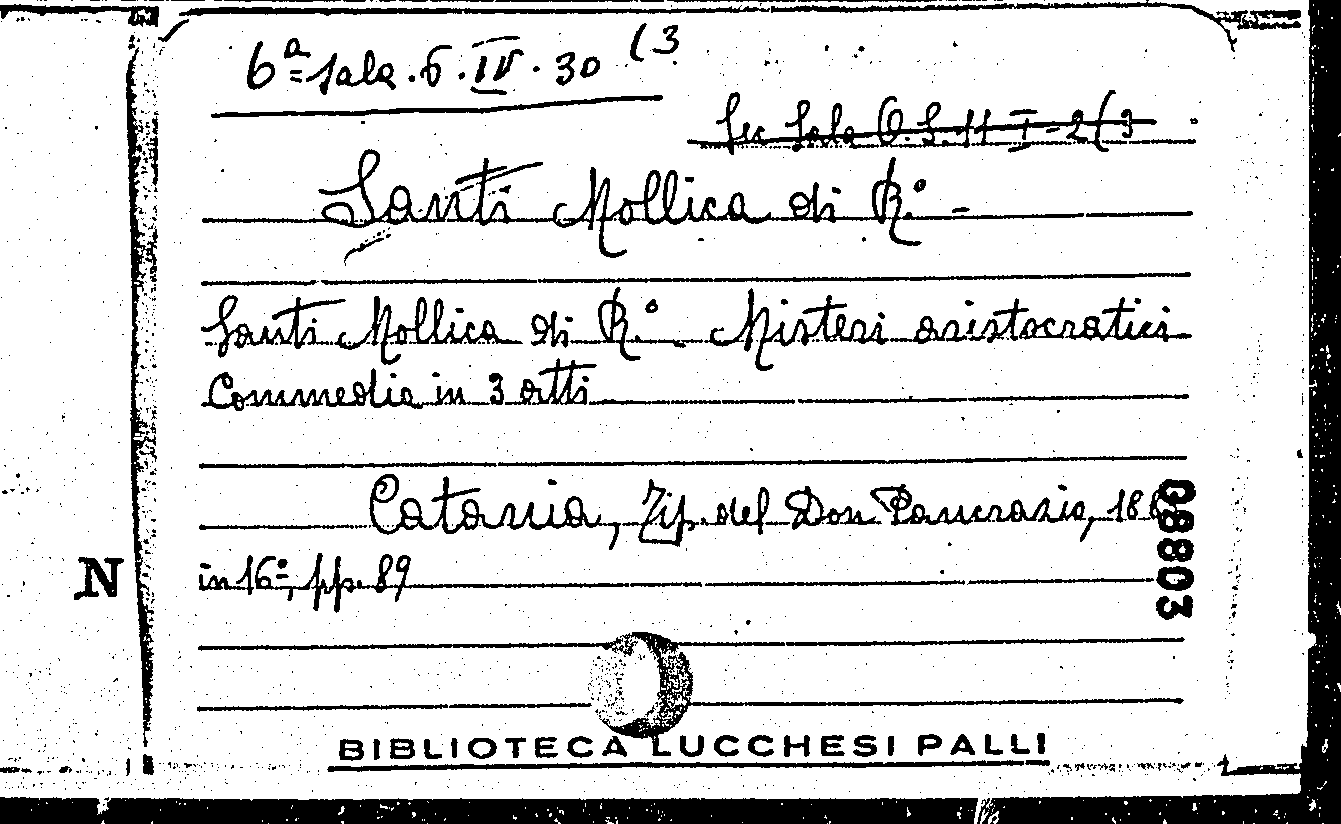 6ª Sala. 6. IV. 30 (3
Sec Sala O. S. 11 I-2(3
Santi Mollica di R.° -
Santi Mollica di R.° - Misteri aristocratici
Commedia in 3 atti
Catania, Tip. del Don Pancrazio, 188
in 16°, pp. 89
N
08803
BIBLIOTECA LUCCHESI PALLI